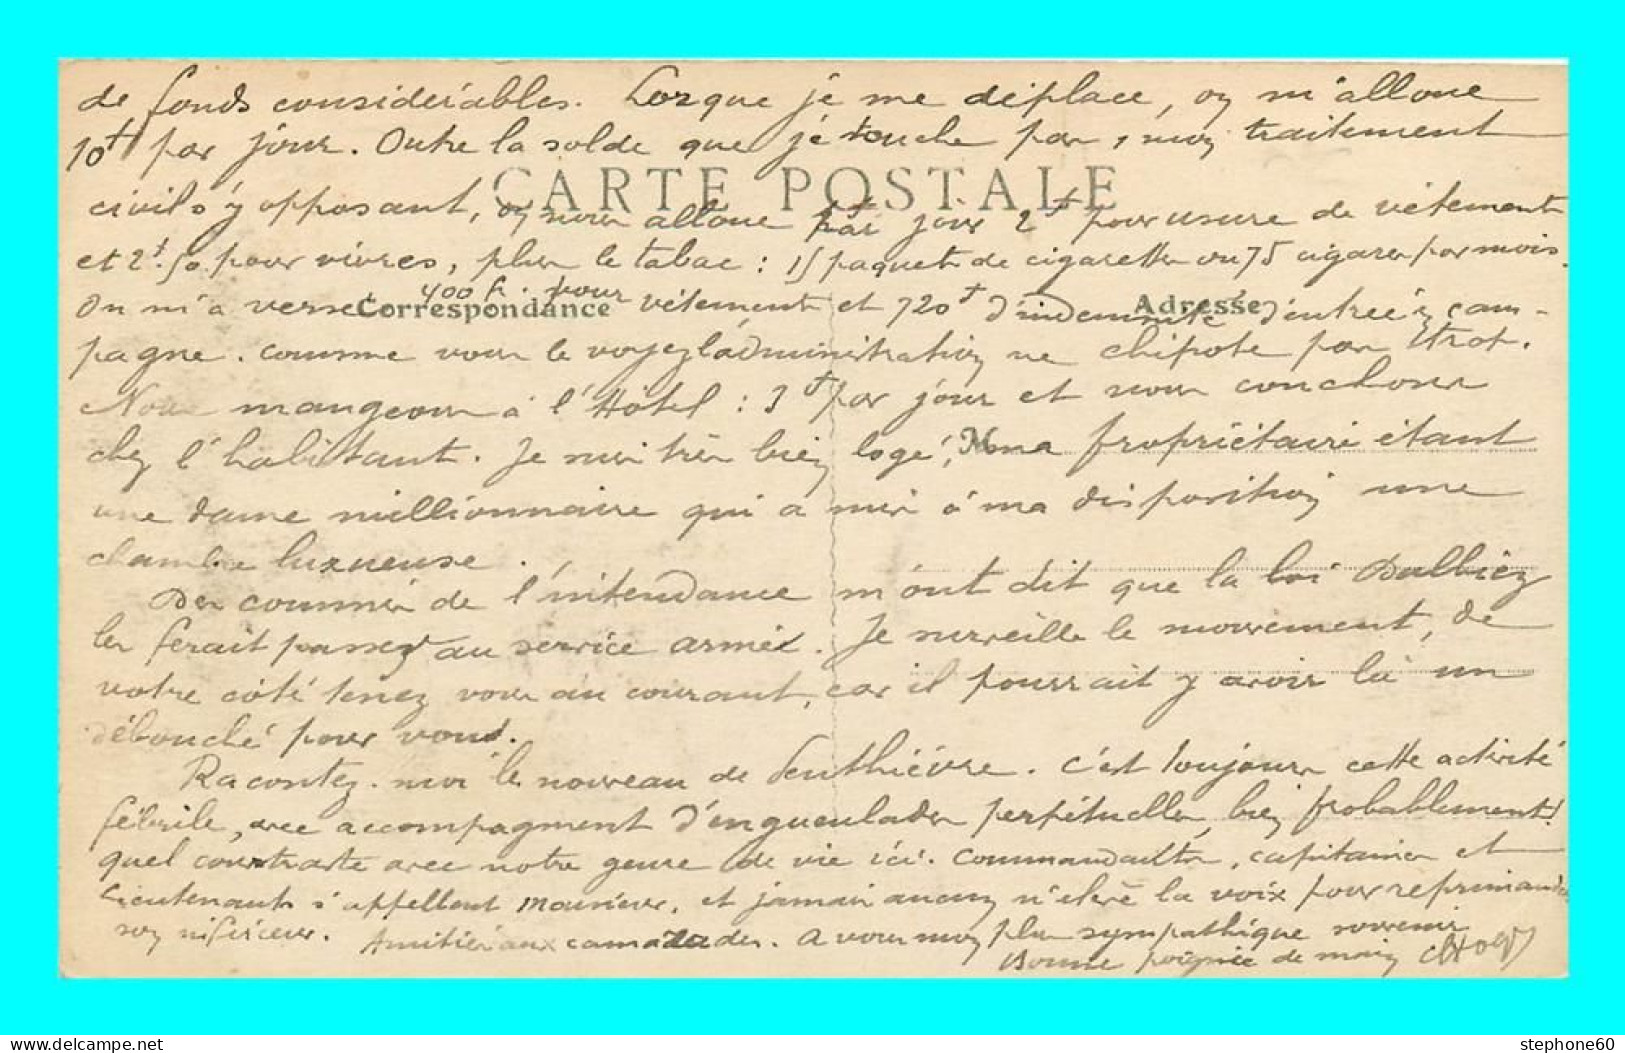 de fonds considérables. Lorsque je me déplace, on m'alloue
10f par jour. Outre la solde que je touche pas, mon traitement
CARTE POSTALE
civil s'y opposant, on nous alloue par jour 2f pour usure de vêtements
et 2f.50 pour vivres, plus le tabac : 15 paquets de cigarettes ou 75 cigares par mois.
On m'a versé 400 fr. pour vêtements et 720f d'indemnité d'entrée en cam-
Correspondance Adresse
pagne. Comme vous le voyez l'administration ne chipote pas trop.
Nous mangeons à l'Hôtel : 3f par jour et nous couchons
chez l'habitant. Je suis très bien logé, ma propriétaire étant
M
une dame millionnaire qui a mis à ma disposition une
chambre luxueuse.
Des commis de l'intendance m'ont dit que la loi Dalbiez
les ferait passer au service armé. Je surveille le mouvement, de
votre côté tenez vous au courant, car il pourrait y avoir là un
débouché pour vous.
Racontez-moi le nouveau de Penthièvre. C'est toujours cette activité
fébrile, avec accompagment d'engueulades perpétuelles, bien probablement!
quel contraste avec notre genre de vie ici. Commandants, capitaines et
lieutenants s'appellent Monsieur, et jamais aucun n'élève la voix pour réprimander
son inférieur. Amitiés aux camarades. A vous mon plus sympathique souvenir
Bonne poignée de main
stephone60